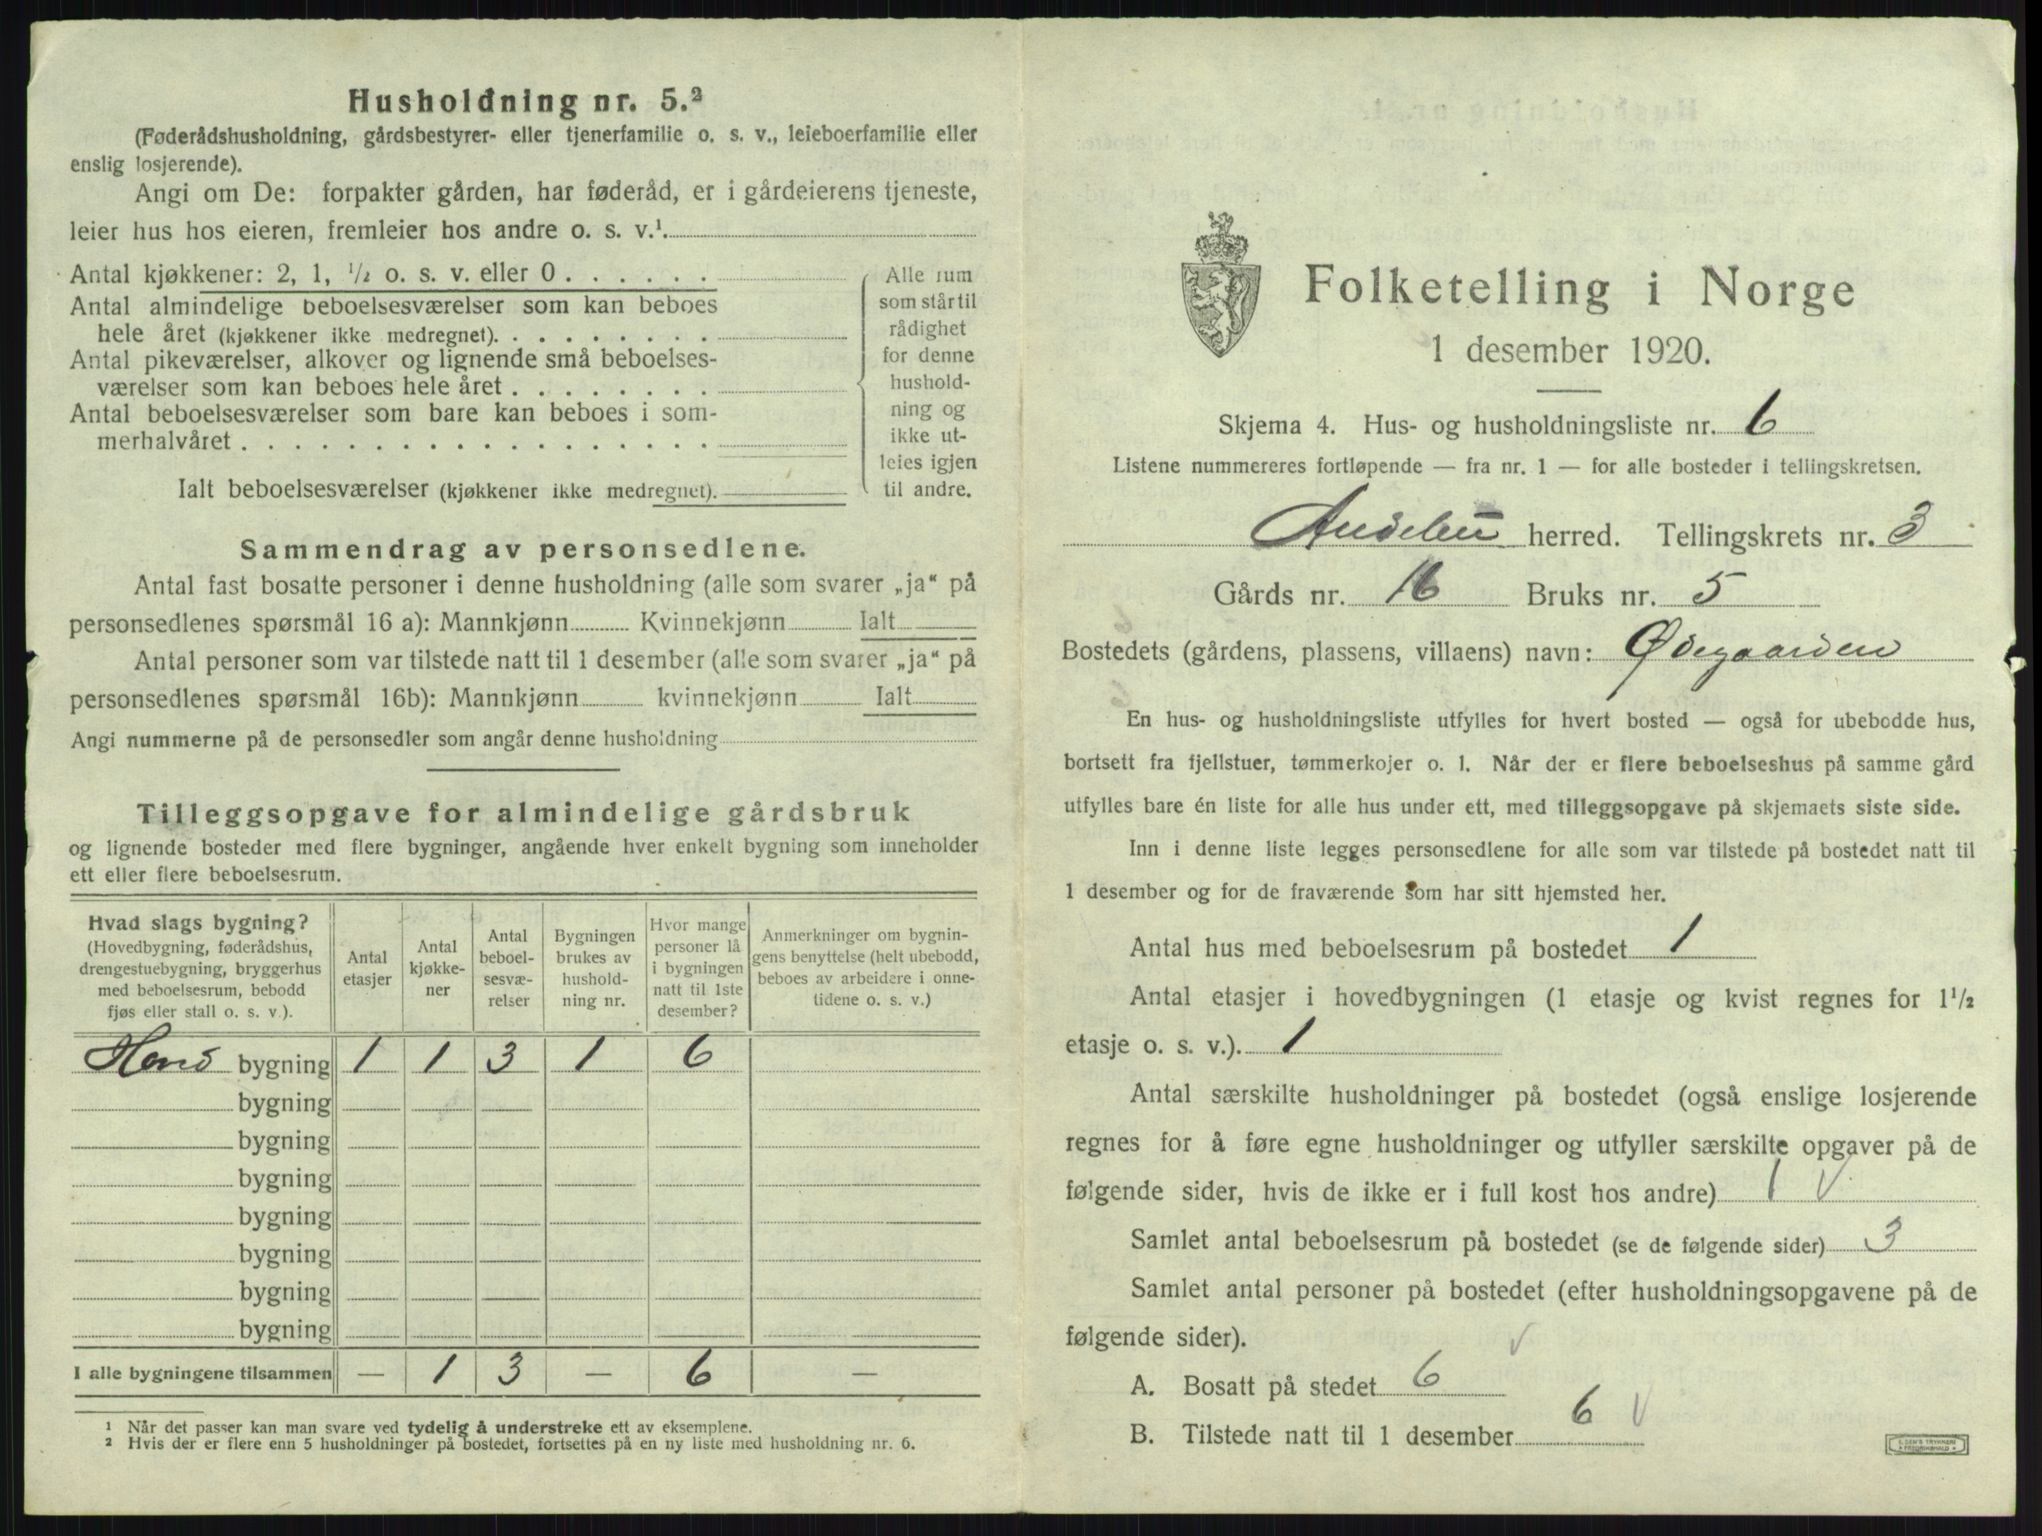 Husholdning nr. 5.²
(Føderådshusholdning, gårdsbestyrer- eller tjenerfamilie o. s. v., leieboerfamilie eller
enslig losjerende).
Angi om De: forpakter gården, har føderåd, er i gårdeierens tjeneste,
leier hus hos eieren, fremleier hos andre o. s. v.¹.
Antal kjøkkener: 2, 1, ½ o. s. v. eller 0 . . . . . .
Antal almindelige beboelsesværelser som kan beboes
hele året (kjøkkener ikke medregnet). . . . . . . . .
Antal pikeværelser, alkover og lignende små beboelses-
værelser som kan beboes hele året . . . . . . . .
Antal beboelsesværelser som bare kan beboes i som-
merhalvåret . . . . . . . . . . . . . . . . . .
Ialt beboelsesværelser (kjøkkener ikke medregnet).
Alle rum
som står til
rådighet
for denne
hushold-
ning og
ikke ut-
leies igjen
til andre.
Sammendrag av personsedlene.
Antal fast bosatte personer i denne husholdning (alle som svarer „ja“ på
personsedlenes spørsmål 16 a): Mannkjønn Kvinnekjønn Ialt
Antal personer som var tilstede natt til 1 desember (alle som svarer „ja“ på
personsedlenes spørsmål 16b): Mannkjønn kvinnekjønn Ialt
Angi nummerne på de personsedler som angår denne husholdning
Tilleggsopgave for almindelige gårdsbruk
og lignende bosteder med flere bygninger, angående hver enkelt bygning som inneholder
ett eller flere beboelsesrum.
Hvad slags bygning?
(Hovedbygning, føderådshus,
drengestuebygning, bryggerhus
med beboelsesrum, bebodd
fjøs eller stall o. s. v.).
Antal
etasjer
Antal
kjøkke-
ner
Antal
beboel-
sesvæ-
relser
Bygningen
brukes av
hushold-
ning nr.
Hvor mange
personer lå
i bygningen
natt til 1ste
desember?
Anmerkninger om bygnin-
gens benyttelse (helt ubebodd,
beboes av arbeidere i onne-
tidene o. s. v.)
bygning 1 1 3 1 6
bygning
bygning
bygning
bygning
bygning
bygning
bygning
I alle bygningene tilsammen — 1 3 — 6 —
¹ Når det passer kan man svare ved tydelig å understreke ett av eksemplene.
² Hvis der er flere enn 5 husholdninger på bostedet, fortsettes på en ny liste med husholdning nr. 6.
Folketelling i Norge
1 desember 1920.
Skjema 4. Hus- og husholdningsliste nr. 6
Listene nummereres fortløpende — fra nr. 1 — for alle bosteder i tellingskretsen.
Andebu herred. Tellingskrets nr. 3
Gårds nr. 16 Bruks nr. 5
Bostedets (gårdens, plassens, villaens) navn: Ødegaarden
En hus- og husholdningsliste utfylles for hvert bosted — også for ubebodde hus,
bortsett fra fjellstuer, tømmerkojer o. l. Når der er flere beboelseshus på samme gård
utfylles bare én liste for alle hus under ett, med tilleggsopgave på skjemaets siste side.
Inn i denne liste legges personsedlene for alle som var tilstede på bostedet natt til
1 desember og for de fraværende som har sitt hjemsted her.
Antal hus med beboelsesrum på bostedet 1
Antal etasjer i hovedbygningen (1 etasje og kvist regnes for 1½
etasje o. s. v.). 1
Antal særskilte husholdninger på bostedet (også enslige losjerende
regnes for å føre egne husholdninger og utfyller særskilte opgaver på de
følgende sider, hvis de ikke er i full kost hos andre) 1 √
Samlet antal beboelsesrum på bostedet (se de følgende sider) 3
Samlet antal personer på bostedet (efter husholdningsopgavene på de
følgende sider). √
A. Bosatt på stedet 6
B. Tilstede natt til 1 desember 6 √